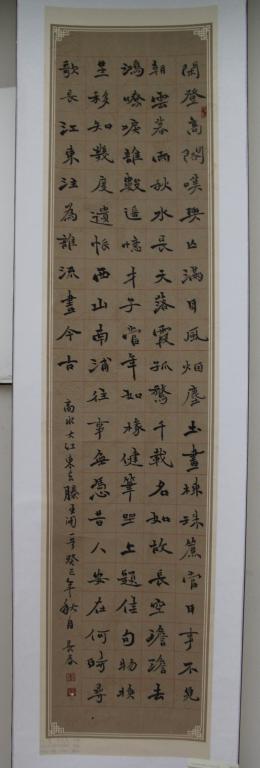 閑登高閣嘆興亡滿目風烟塵土畫棟珠簾當日事不見
朝雲暮雨秋水長天落霞孤鶩千載名如故長空澹澹去
鴻嘹唳誰數遥憶才子當年如椽健筆坐上題佳句物換
星移知幾度遺恨西山南浦往事無憑昔人安在何時尋
歌長江東注為誰流盡今古
高永大江東去滕王閣一首癸巳年秋月長春